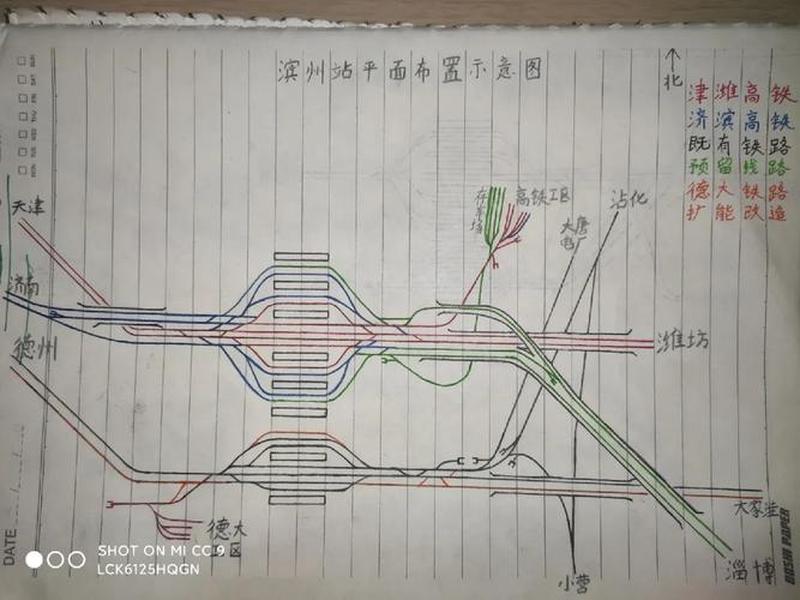 滨州站平面布置示意图
北
津潍高铁
济滨高铁
既有铁路
预留线路
德大铁路
扩能改造
天津
济南
德州
存车场
高铁工区
大唐
电厂
沾化
潍坊
德大
工区
大家洼
淄博
小营
DATE
BOSHI PAPER
SHOT ON MI CC 9
LCK6125HQGN